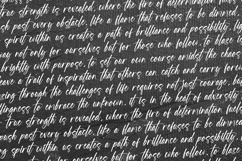 true strength is revealed, where the fire of determination fuels
push past every obstacle, like a flame that refuses to be dimmed
spirit within us creates a path of brilliance and possibility.
may not only for ourselves but for those who follow, to blaze
brightly with purpose, to set our own course amidst the chaos
leave a trail of inspiration that others can catch and carry forward
Rising through the challenges of life requires not just courage, but
willingness to embrace the unknown. it is in the heat of adversity
true strength is revealed, where the fire of determination fuels
push past every obstacle, like a flame that refuses to be dimmed
spirit within us creates a path of brilliance and possibility
for ourselves but for those who follow, to blaze